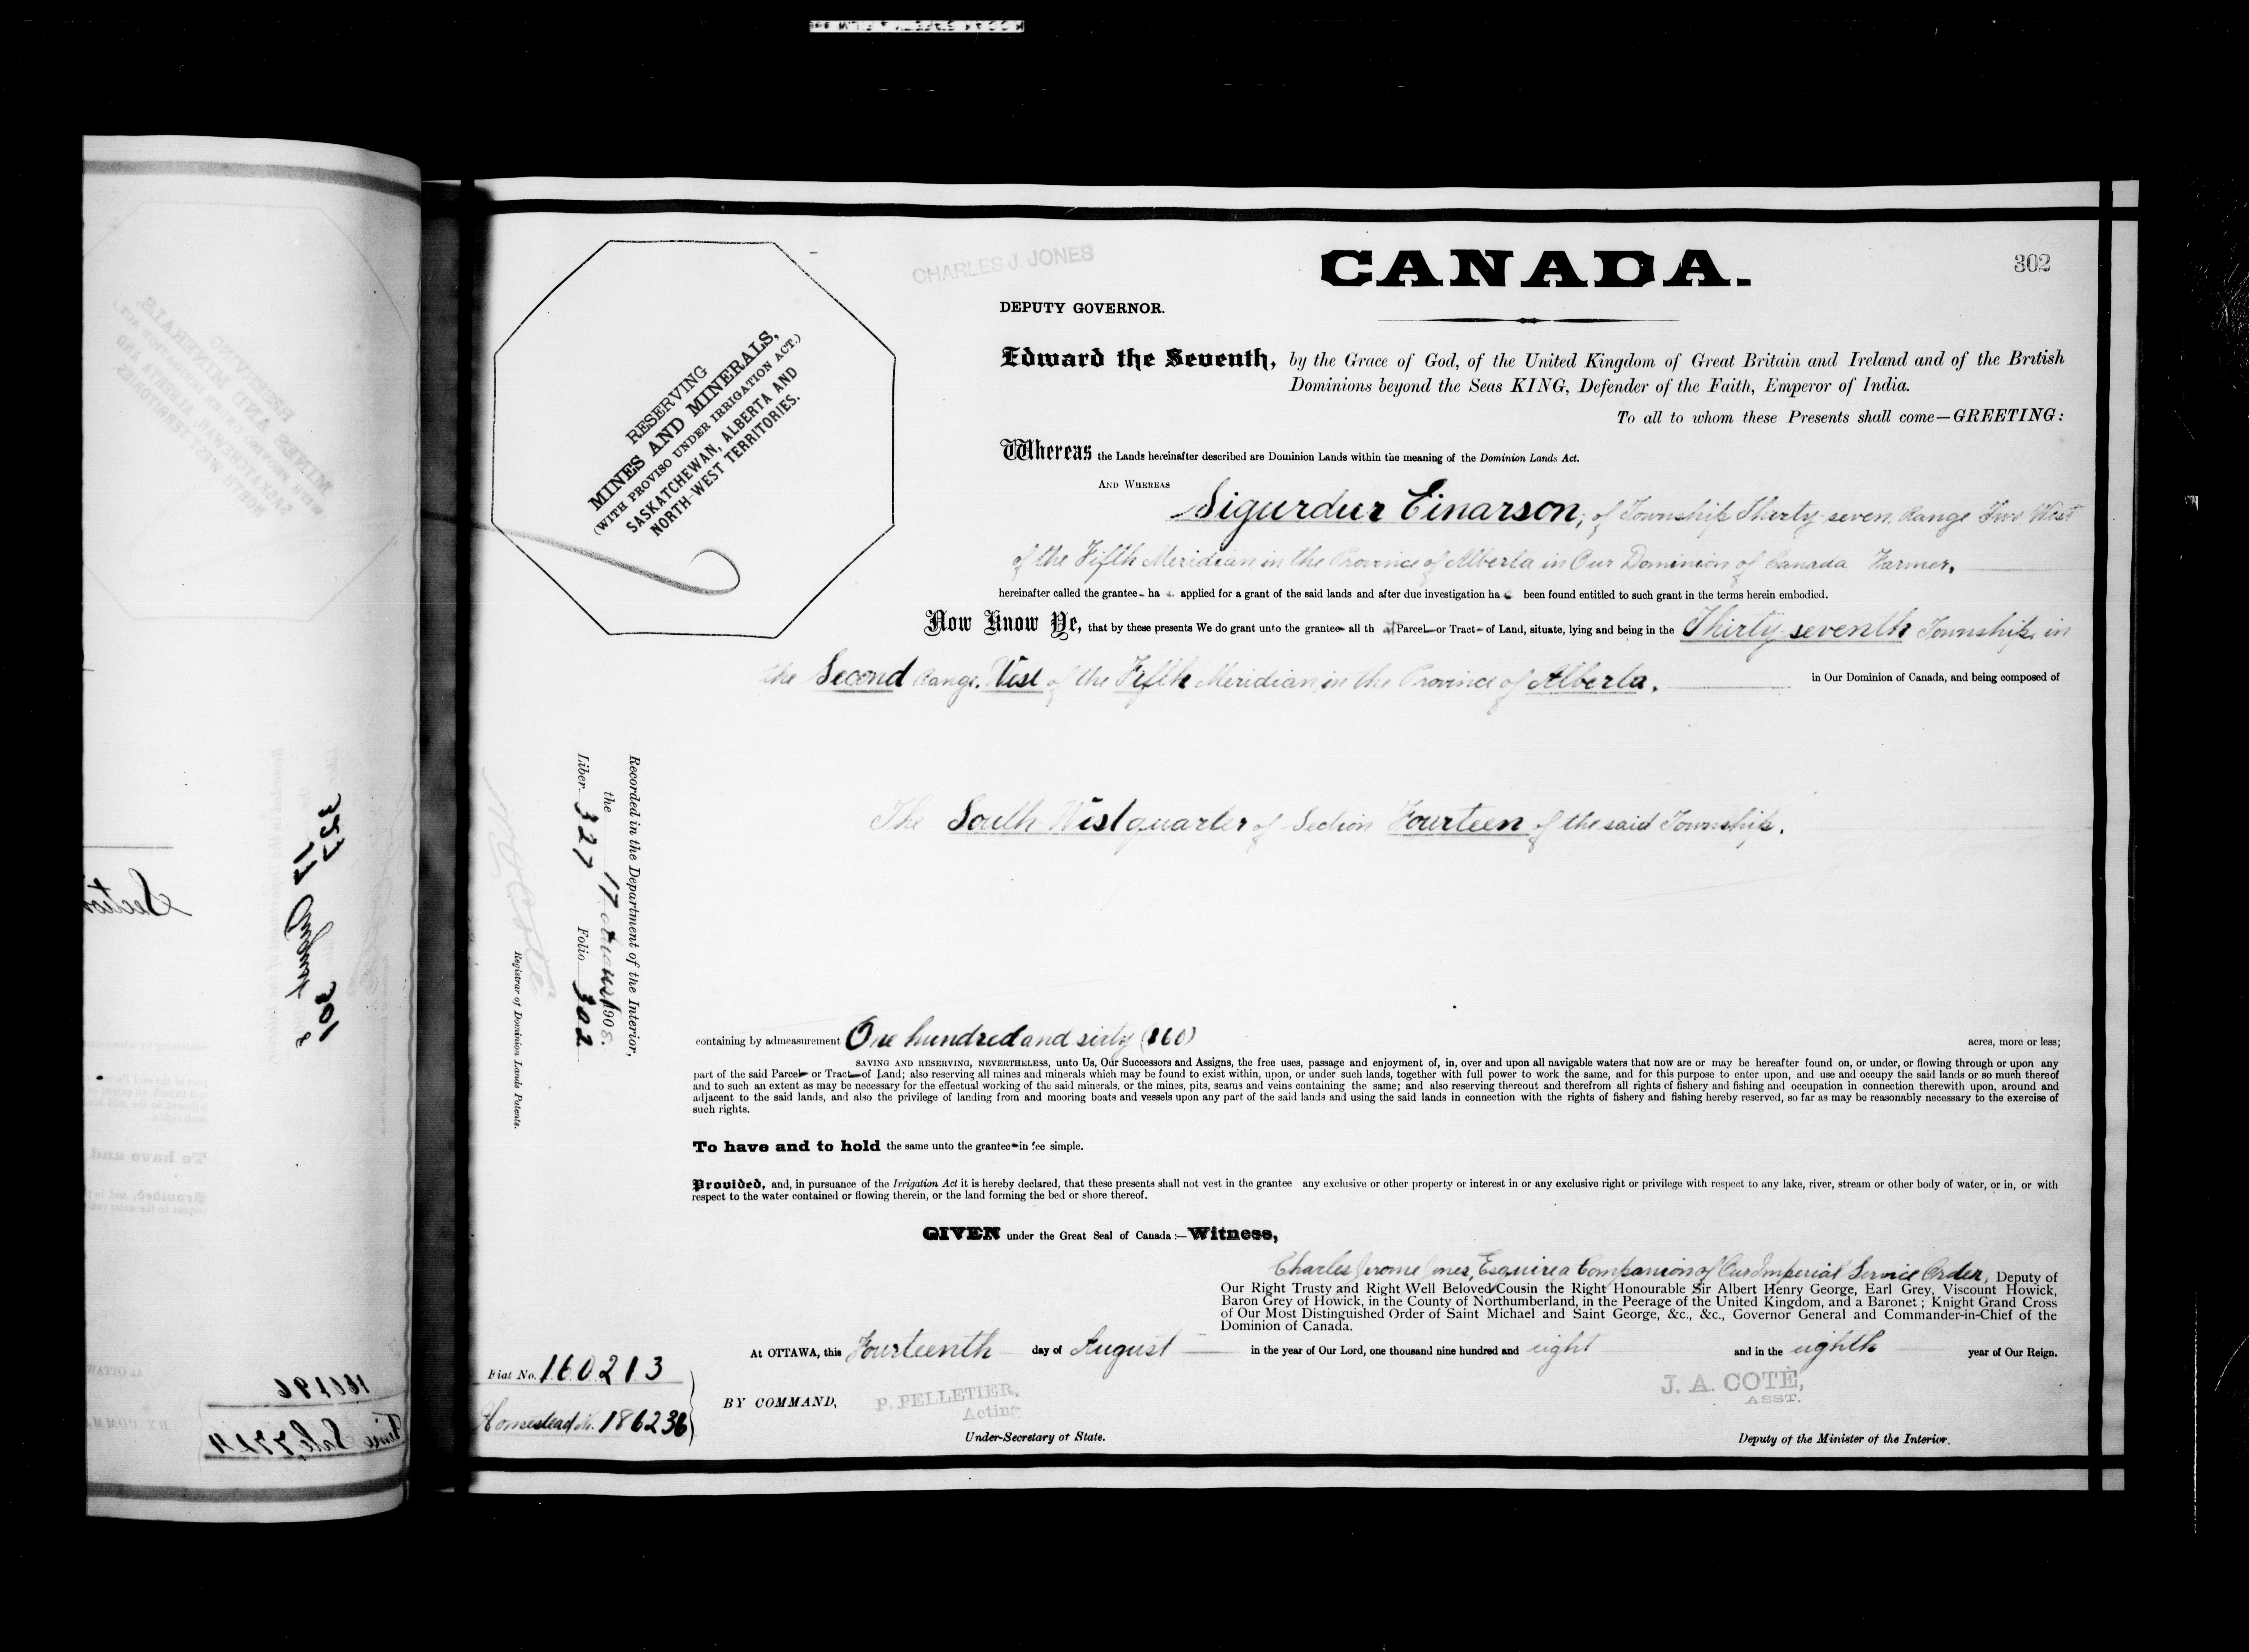 CHARLES J. JONES
CANADA.
302
DEPUTY GOVERNOR.
Edward the Seventh, by the Grace of God, of the United Kingdom of Great Britain and Ireland and of the British
Dominions beyond the Seas KING, Defender of the Faith, Emperor of India.
To all to whom these Presents shall come—GREETING:
Whereas the Lands hereinafter described are Dominion Lands within the meaning of the Dominion Lands Act.
AND WHEREAS
Sigurdur Einarson, of Township Thirty-seven, Range Two, West
of the Fifth Meridian in the Province of Alberta in Our Dominion of Canada Farmer,
hereinafter called the grantee ha s applied for a grant of the said lands and after due investigation ha s been found entitled to such grant in the terms herein embodied.
Now Know Ye, that by these presents We do grant unto the grantee all th at Parcel or Tract of Land, situate, lying and being in the Thirty-seventh Township, in
the Second Range, West of the Fifth Meridian, in the Province of Alberta, in Our Dominion of Canada, and being composed of
The South West quarter of Section Fourteen of the said Township.
containing by admeasurement One hundred and sixty (160) acres, more or less;
SAVING AND RESERVING, NEVERTHELESS, unto Us, Our Successors and Assigns, the free uses, passage and enjoyment of, in, over and upon all navigable waters that now are or may be hereafter found on, or under, or flowing through or upon any
part of the said Parcel or Tract of Land; also reserving all mines and minerals which may be found to exist within, upon, or under such lands, together with full power to work the same, and for this purpose to enter upon, and use and occupy the said lands or so much thereof
and to such an extent as may be necessary for the effectual working of the said minerals, or the mines, pits, seams and veins containing the same; and also reserving thereout and therefrom all rights of fishery and fishing and occupation in connection therewith upon, around and
adjacent to the said lands, and also the privilege of landing from and mooring boats and vessels upon any part of the said lands and using the said lands in connection with the rights of fishery and fishing hereby reserved, so far as may be reasonably necessary to the exercise of
such rights.
To have and to hold the same unto the grantee in fee simple.
Provided, and, in pursuance of the Irrigation Act it is hereby declared, that these presents shall not vest in the grantee any exclusive or other property or interest in or any exclusive right or privilege with respect to any lake, river, stream or other body of water, or in, or with
respect to the water contained or flowing therein, or the land forming the bed or shore thereof.
GIVEN under the Great Seal of Canada:—Witness,
Charles Jerome Jones, Esquire a Companion of Our Imperial Service Order, Deputy of
Our Right Trusty and Right Well Beloved Cousin the Right Honourable Sir Albert Henry George, Earl Grey, Viscount Howick,
Baron Grey of Howick, in the County of Northumberland, in the Peerage of the United Kingdom, and a Baronet; Knight Grand Cross
of Our Most Distinguished Order of Saint Michael and Saint George, &c., &c., Governor General and Commander-in-Chief of the
Dominion of Canada.
At OTTAWA, this Fourteenth day of August in the year of Our Lord, one thousand nine hundred and eight and in the eighth year of Our Reign.
BY COMMAND,
P. PELLETIER,
Acting
Under-Secretary of State.
J. A. COTÉ,
ASST.
Deputy of the Minister of the Interior.
RESERVING
MINES AND MINERALS,
(WITH PROVISO UNDER IRRIGATION ACT.)
SASKATCHEWAN, ALBERTA AND
NORTH-WEST TERRITORIES.
Recorded in the Department of the Interior,
the 17 August 1908.
Liber 327 Folio 302
Registrar of Dominion Lands Patents.
Fiat No. 160213
Homestead No. 186236